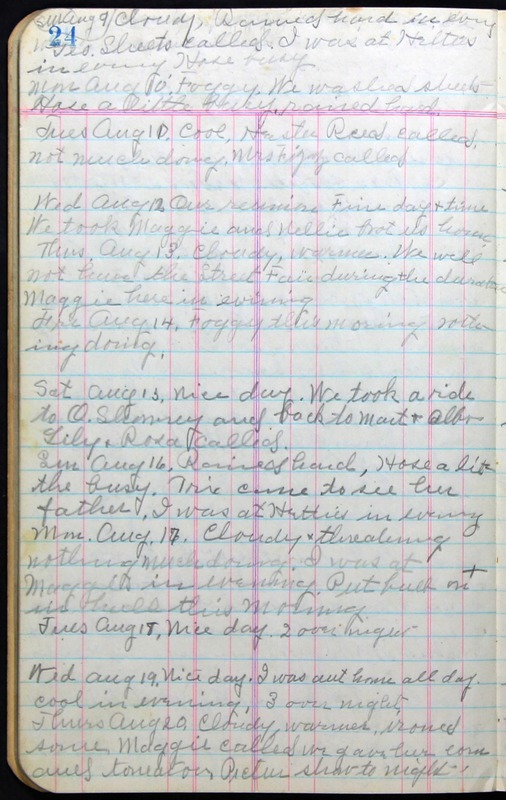 Sun Aug 9 Cloudy, Rained hard in every
24
Geo. Sheets called. I was at Hetties
in evening Hose busy
Mon Aug 10, Foggy We washed sheets
Hose a little busy, rained hard.
Tues Aug 11, Cool, Hester Reed called,
not much doing. Mrs called
Wed Aug 12 Our reunion Fine day & time
We took Maggie and Nellie brot us home,
Thurs, Aug 13, Cloudy, warmer. We will
not have the Street Fair during the duration
Maggie here in evining
Fri Aug 14, Foggy this morning noth
ing doing.
Sat Aug 15, Nice day. We took a ride
to O. and back to Mart &
Lily & Rosa called.
Sun Aug 16, Rained hard, Hose a lit
tle busy. Trix came to see her
father, I was at Hetties in evening
Mon. Aug, 17. Cloudy & threatening
nothing much doing, I was at
Maggies in evening. Put bulb in +
this morning
Tues Aug 18, Nice day. 2 over night
Wed Aug 19, Nice day. I was out home all day.
cool in evening, 3 over night,
Thurs Aug 20 Cloudy, warmer, ironed
some, Maggie called we gave her corn
and tomatoes, Pictur show to night.